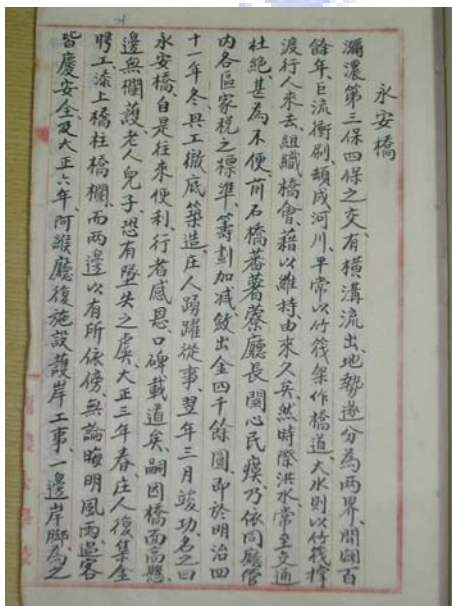 永安橋
瀰濃第三保四保之交、有橫溝流出、地勢遂分為兩界、開闢百
餘年、巨流衝刷、頓成河川、平常以竹筏架作橋道、大水則以竹筏撑
渡行人來去、組織橋會、藉以維持、由來久矣、然時際洪水、常至交通
杜絕、甚為不便、前石橋蕃薯藔廳長關心民瘼乃依同廳管
內各區家稅之標準、籌劃加減鳩出金四千餘圓、即於明治四
十一年冬、興工徹底築造、庄人踴躍從事、翌年三月竣功、名之曰
永安橋、自是往來便利、行者感恩、口碑載道矣、嗣因橋面高懸
邊無欄護、老人兒子、恐有墜失之虞、大正三年春、庄人復集金
聘工、添上橋柱橋欄、而兩邊以有所依傍、無論晦明風雨、過客
皆慶安全、及大正六年、阿緱廳復施設護岸工事、一邊岸腳為之